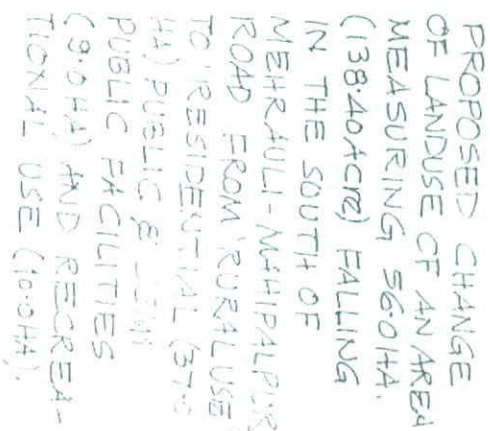 PROPOSED CHANGE
OF LANDUSE OF AN AREA
MEASURING 56.0 HA.
(138.40 Acre) FALLING
IN THE SOUTH OF
MEHRAULI-MAHIPALPUR
ROAD FROM 'RURAL USE'
TO 'RESIDENTIAL (37.0
HA) PUBLIC & SEMI
PUBLIC FACILITIES
(9.0 HA) AND RECREA-
TIONAL' USE (10.0 HA).